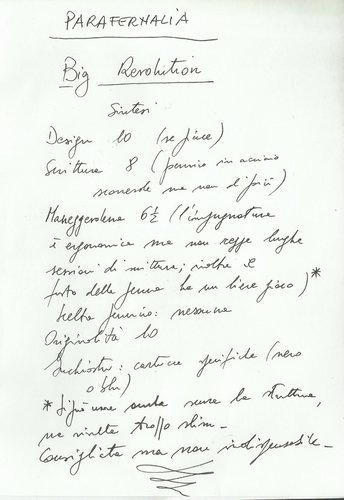 PARAFERNALIA
Big Revolution
Sintesi
Design 10 (se piace)
Scrittura 8 (pennino in acciaio
scorrevole ma non di più)
Maneggevolezza 6 ½ (l'impugnatura
è ergonomica ma non regge lunghe
sessioni di scrittura; inoltre il
fusto della penna ha un lieve gioco)*
Scelta pennino: nessuna
Originalità 10
Inchiostri: cartucce specifiche (nero
o blu)
* Si può usare anche senza la struttura,
ma risulta troppo slim_
Consigliata ma non indispensabile_